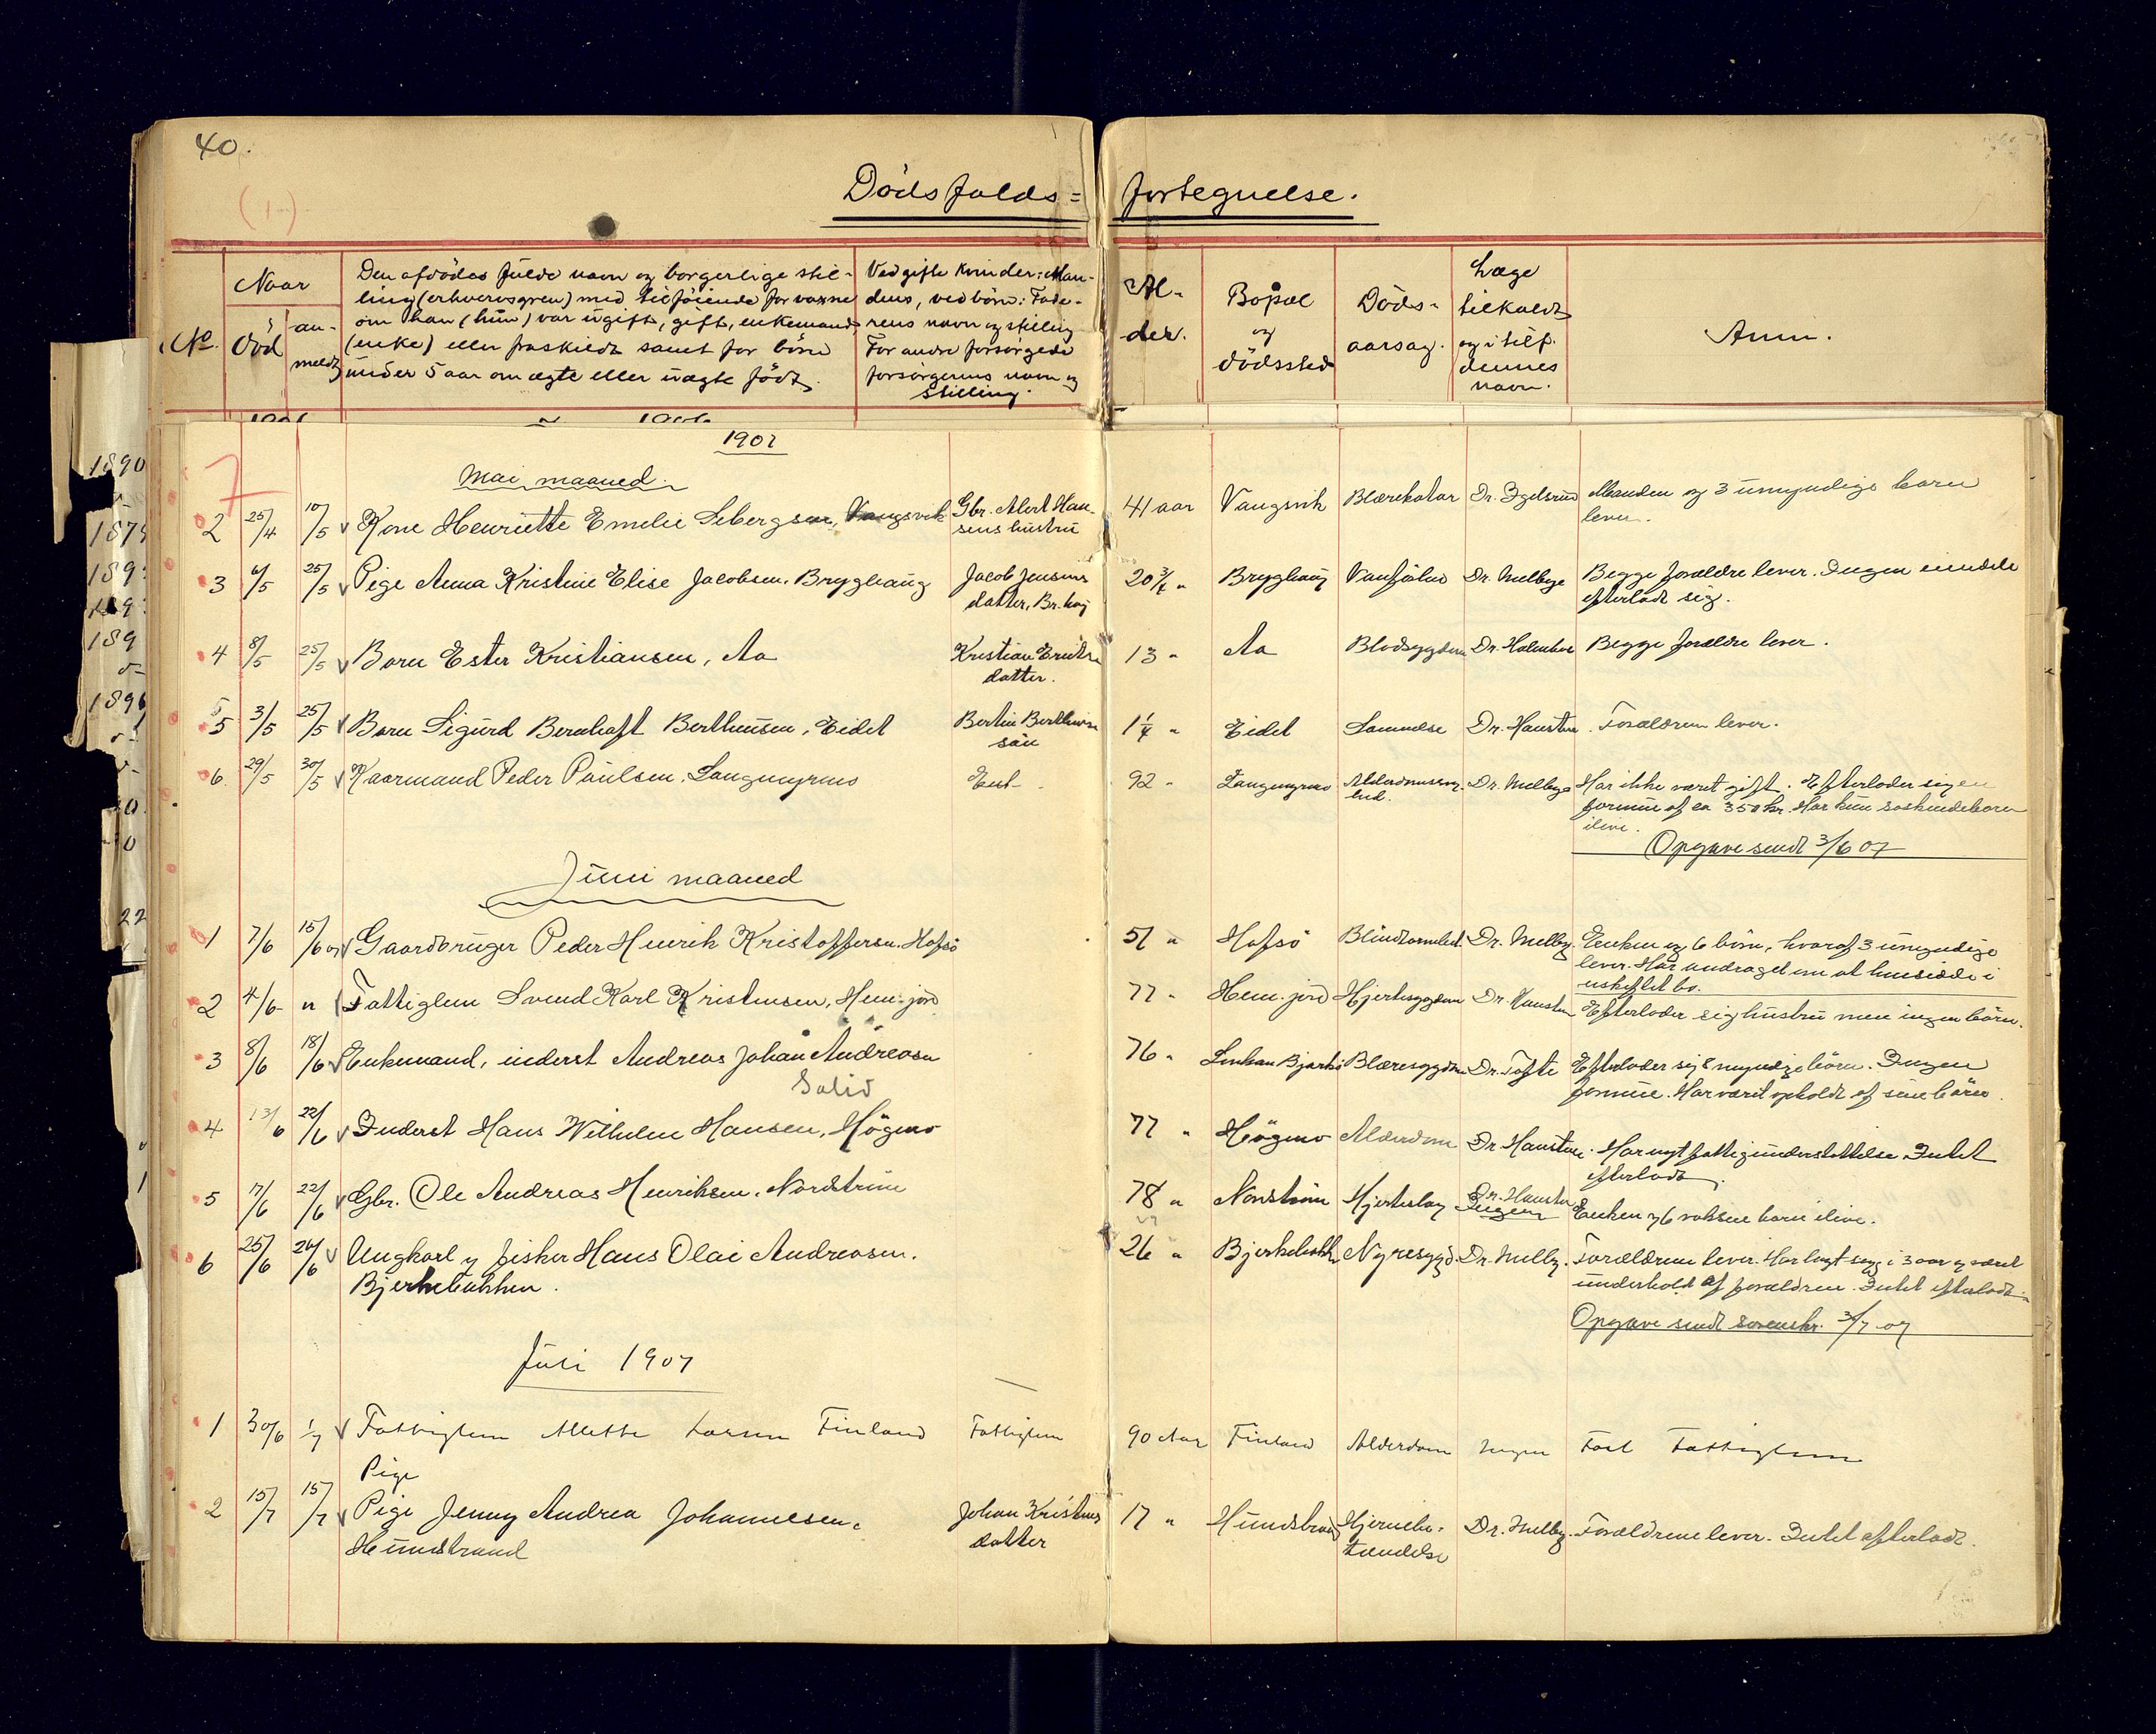 40.
Dödsfalds= fortegnelse.
No.
Naar
död
an-
meldt
Den afdödes fulde navn og borgerlige stil-
ling (erhvervsgren) med tilföiende for voxne
om han (hun) var ugift, gift, enkemand
(enke) eller fraskildt samt for börn
under 5 aar om ægte eller uægte födt.
Ved gifte kvinder: Man-
dens, ved börn: Fade-
rens navn og stilling
For andre forsörgede
forsörgerens navn og
stilling.
Al-
der.
Bopæl
og
dödssted
Döds-
aarsag.
Læge
tilkaldt
og i tilf.
dennes
navn.
Anm.
1907
Mai maaned.
2 25/4 10/5 Kone Henriette Emelie Sebergsen, Vangsvik Gbr. Alert Han- 41 aar Vangsvik Blærekatar Dr. Manden og 3 umyndige barn
sens hustru lever.
3 6/5 25/5 Pige Anna Kristine Elise Jacobsen, Bryghaug Jacob Jensens 20 3/4 " Bryghaug Dr. Melbye Begge forældre lever. Ingen eiendele
datter, Br.haug efterladt sig.
4 8/5 25/5 Barn Ester Kristiansen, Aa Kristian 13 " Aa Blodsygdom Dr. Begge forældre lever.
datter.
5 3/5 25/5 Barn Sigurd Bernhaft Berthensen, Eidet Bertin 1 1/4 " Eidet Dr. Forældrene lever.
sön
6. 29/5 30/5 Kaarmand Peder Paulsen. Langmyrmo 92 " Langmyrmo Dr. Melbye Har ikke været gift. Efterlader sig en
formue af ca 350 kr. Har kun söskendebarn
ilive.
Opgave sendt 3/6 07
Juni maaned
1 7/6 15/6 07 Gaardbruger Peder Henrik Kristoffersen. Hofsö 51 " Hofsö Blindtarmbet. Dr. Melby. Enken og 6 börn, hvoraf 3 umyndige
lever. Har andraget om at hensidde i
uskiftet bo.
2 4/6 " Fattiglem Svend Karl Kristensen, Hem.jord 77 " Hem.jord Hjertesygdom Dr. Efterlader sig hustru men ingen börn.
3 8/6 18/6 Enkemand, inderst Andreas Johan Andreasen 76 " Blæresygdom Dr. Tofte Efterlader sig myndige börn. Ingen
formue. Har været opholdt af sine börn.
4 13/6 22/6 Inderst Hans Wilhelm Hansen, Högmo 77 " Högmo Alderdom Dr. Har nyt fattigunderstöttelse. Intet
efterladt.
5 17/6 22/6 Gbr. Ole Andreas Henriksen. Nordström 78 " Nordström Hjerteslag Dr.
Ingen Enken og 6 voksne barn ilive.
6 25/6 26/6 Ungkarl og fisker Hans Olai Andreasen. 26 " Bjerkebakken Nyresygd. Dr. Melby. Forældrene lever. Har ligt syg i 3 aar og været
Bjerkebakken. underholdt af forældrene. Intet efterladt.
Opgave sendt sorenskr. 3/7 07
Juli 1907
1 30/6 1/7 Fattiglem Mette Larsen Finland Fattiglem 90 Aar Finland Alderdom Ingen Fattiglem
Pige
2 15/7 15/7 Pige Jenny Andrea Johannesen. Johan Kristens 17 " Hundstrand Hjernebe- Dr. Melby. Forældrene lever. Intet efterladt.
Hundstrand datter tændelse